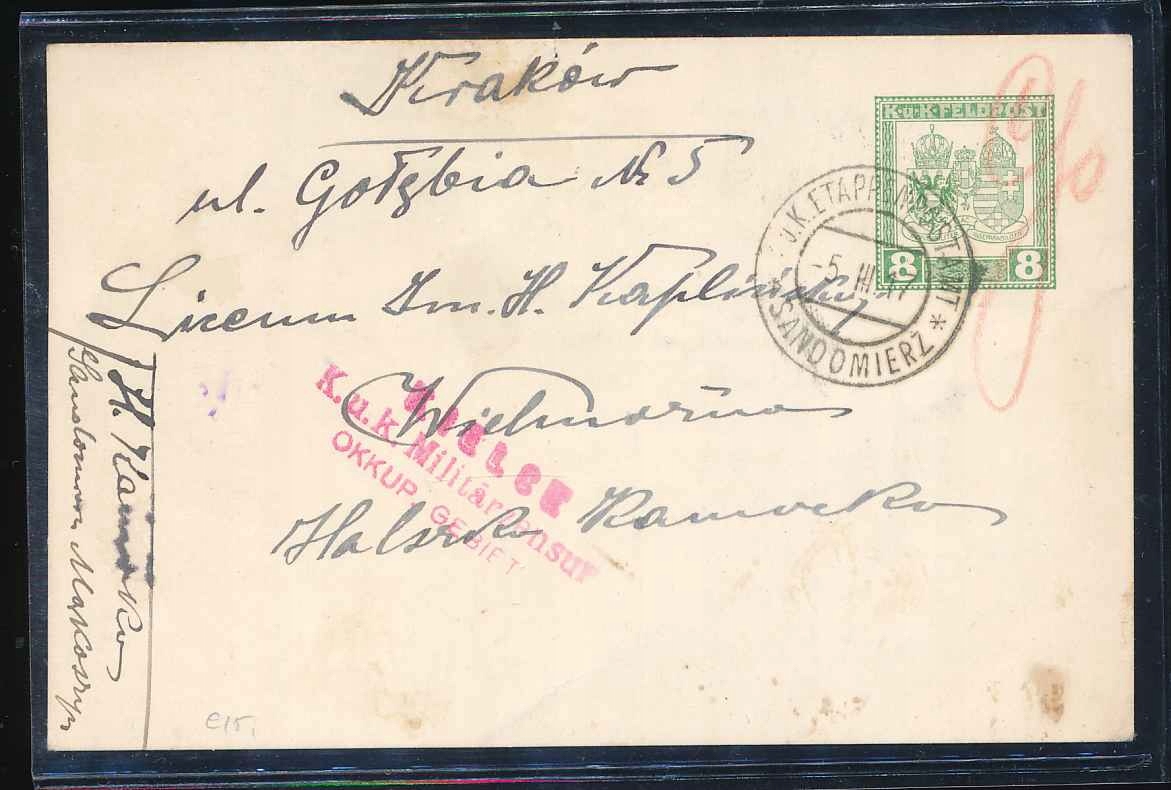 Kraków
ul. Gołębia Nr 5
Liceum Im. H. Kaplińskiej
Wielmożna
Halszka
K.u.K. FELDPOST
8 8
K.u.K. ETAPPENPOSTAMT
-5. III. 17
* SANDOMIERZ *
KIELCE
K.u.k. Militärzensur
OKKUP. GEBIET
H.
Sandomierz